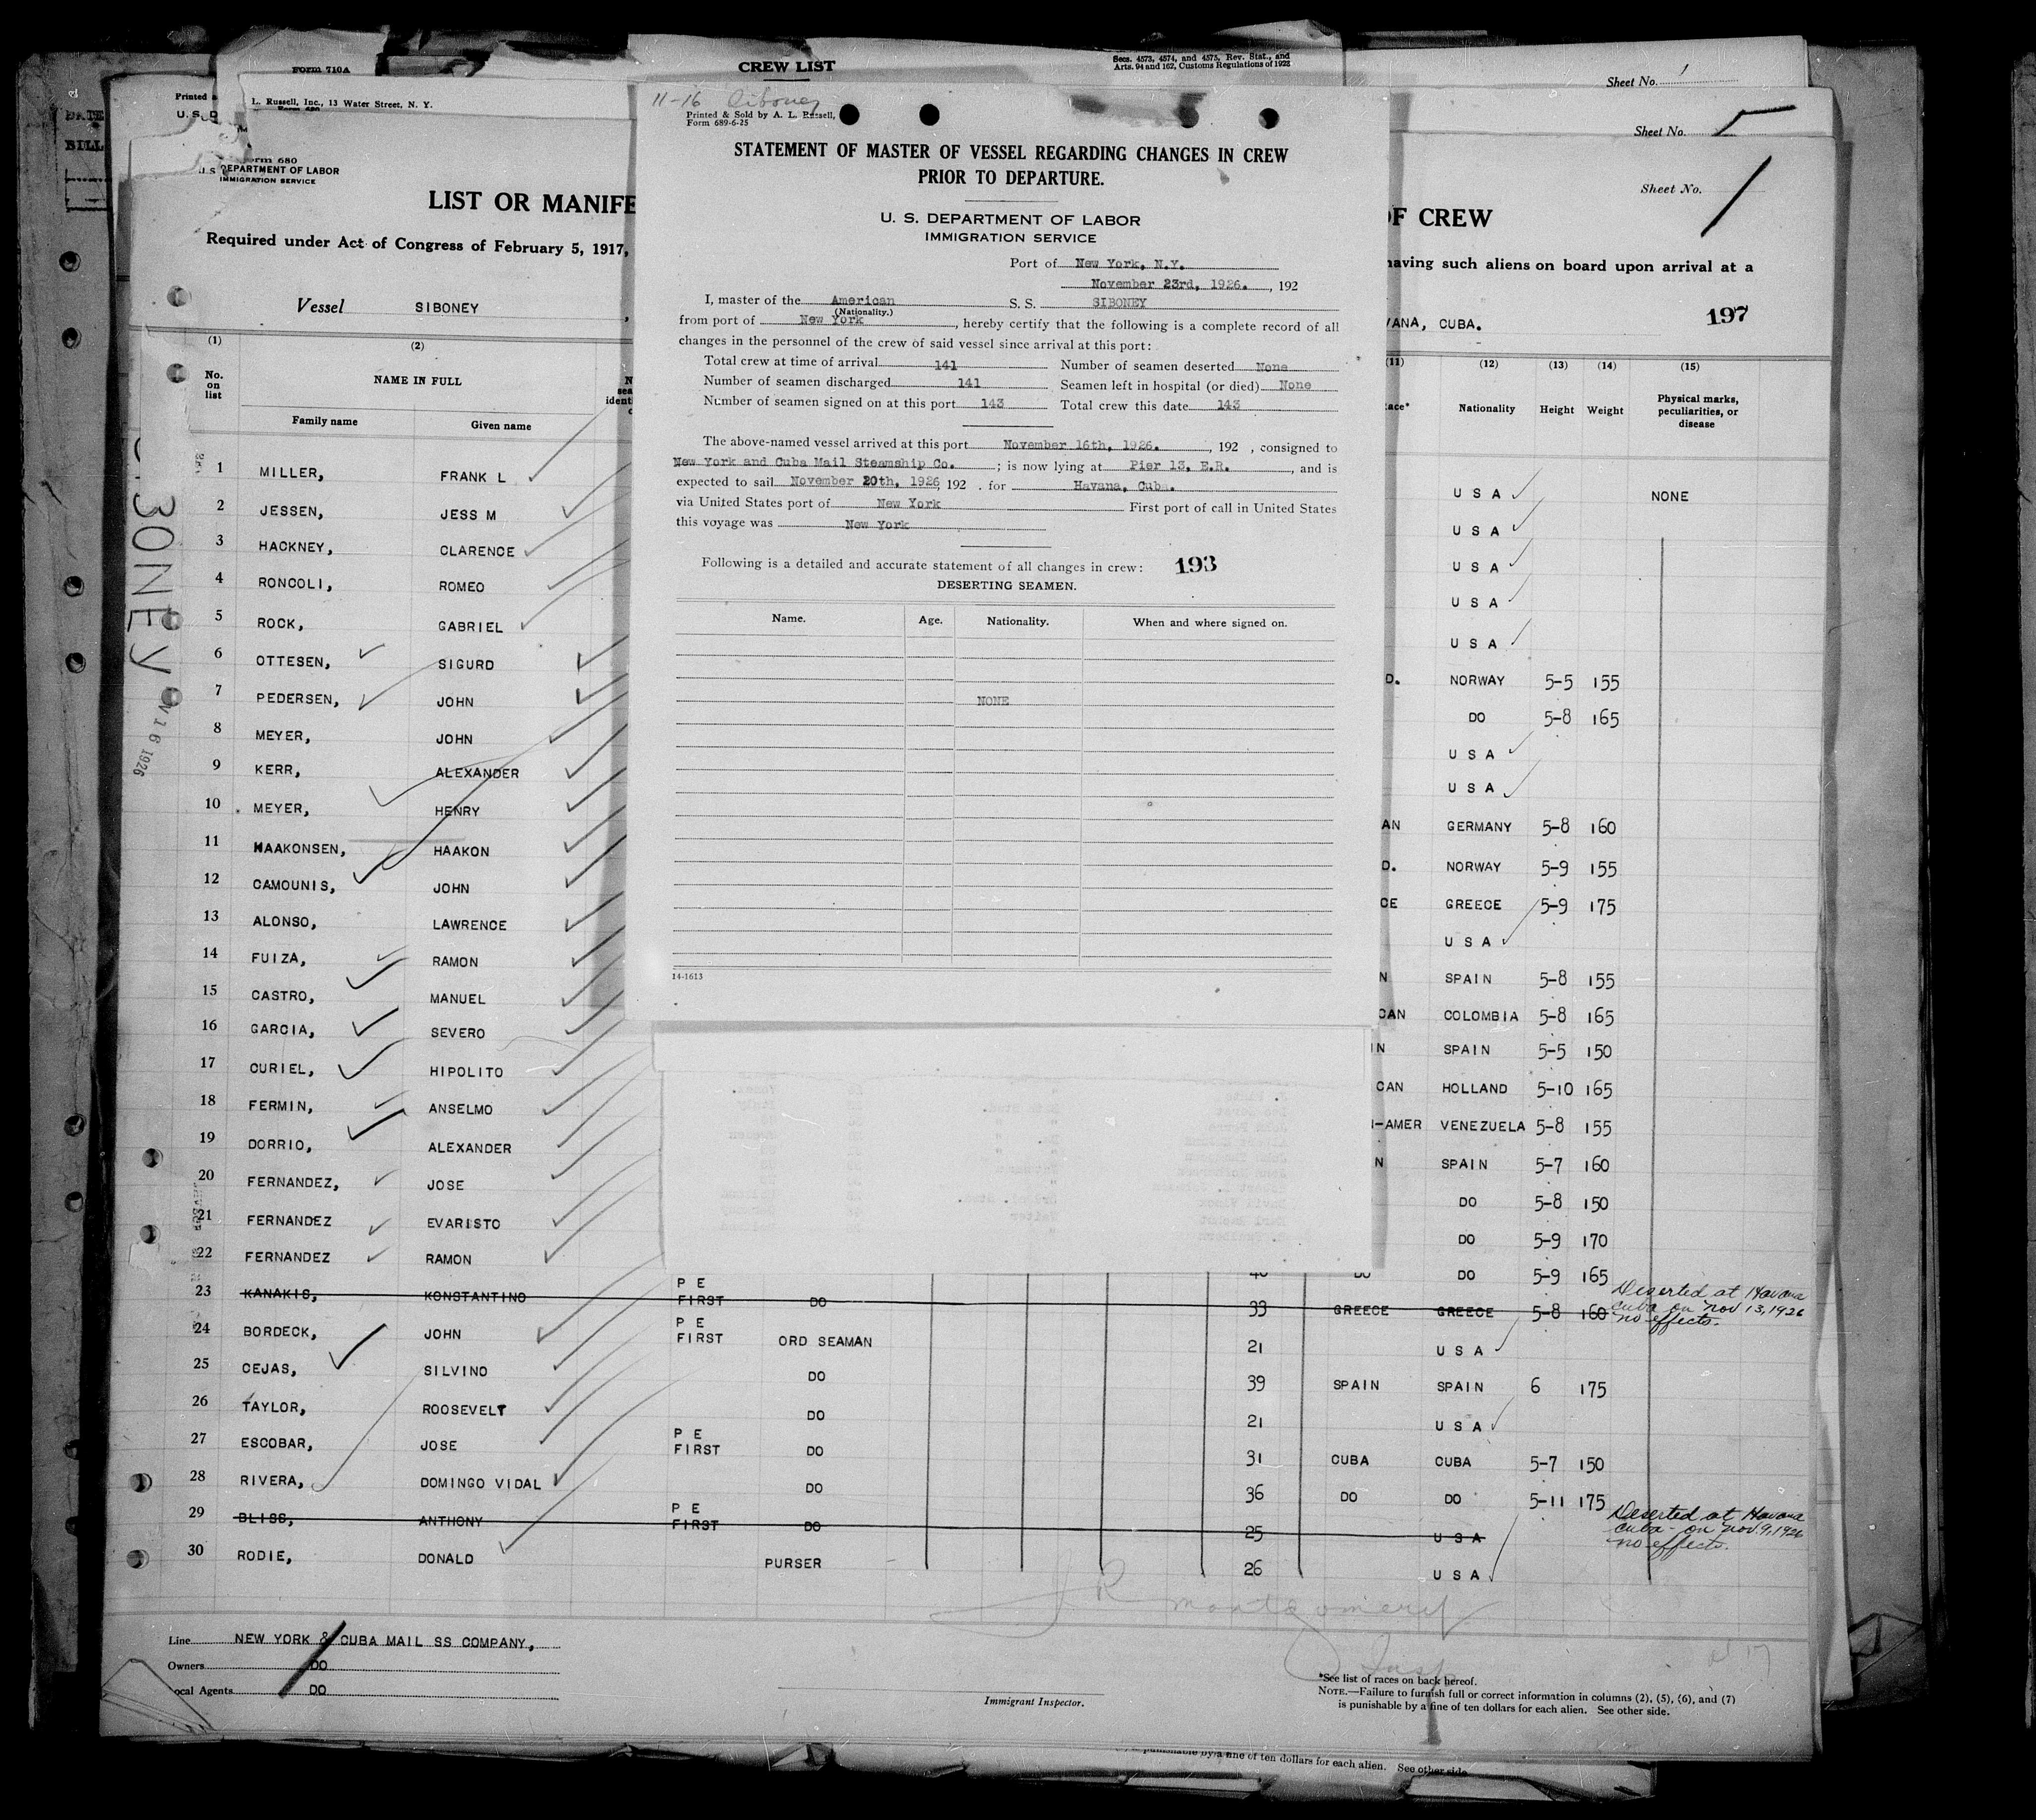 Form 710A
CREW LIST
Secs. 4573, 4574, and 4575, Rev. Stat., and
Arts. 94 and 162, Customs Regulations of 1923
Sheet No. 1
L. Russell, Inc., 13 Water Street, N. Y.
Printed
U. S. D
DATE
BILL
Sheet No.
11-16 Siboney
Printed & Sold by A. L. Russell,
Form 689-6-25
STATEMENT OF MASTER OF VESSEL REGARDING CHANGES IN CREW
PRIOR TO DEPARTURE.
U. S. DEPARTMENT OF LABOR
IMMIGRATION SERVICE
Port of New York, N.Y.
November 23rd, 1926. , 192
I, master of the American S. S. SIBONEY
(Nationality.)
from port of New York , hereby certify that the following is a complete record of all
changes in the personnel of the crew of said vessel since arrival at this port:
Total crew at time of arrival 141 Number of seamen deserted None
Number of seamen discharged 141 Seamen left in hospital (or died) None
Number of seamen signed on at this port 143 Total crew this date 143
The above-named vessel arrived at this port November 16th, 1926. , 192 , consigned to
New York and Cuba Mail Steamship Co. ; is now lying at Pier 13, E.R. , and is
expected to sail November 20th, 1926, 192 . for Havana, Cuba.
via United States port of New York First port of call in United States
this voyage was New York
Following is a detailed and accurate statement of all changes in crew: 193
DESERTING SEAMEN.
Name. Age. Nationality. When and where signed on.
NONE
14-1613
Form 680
U. S. DEPARTMENT OF LABOR
IMMIGRATION SERVICE
Sheet No. 1
LIST OR MANIFE
OF CREW
Required under Act of Congress of February 5, 1917,
having such aliens on board upon arrival at a
Vessel SIBONEY ,
VANA, CUBA. 197
(1) (2) (11) (12) (13) (14) (15)
No. on list NAME IN FULL Nationality Height Weight Physical marks, peculiarities, or disease
Family name Given name
SIBONEY
16 1926
1 MILLER, FRANK L U S A NONE
2 JESSEN, JESS M U S A
3 HACKNEY, CLARENCE U S A
4 RONCOLI, ROMEO U S A
5 ROCK, GABRIEL U S A
6 OTTESEN, SIGURD D. NORWAY 5-5 155
7 PEDERSEN, JOHN DO 5-8 165
8 MEYER, JOHN U S A
9 KERR, ALEXANDER U S A
10 MEYER, HENRY AN GERMANY 5-8 160
11 HAAKONSEN, HAAKON D. NORWAY 5-9 155
12 CAMOUNIS, JOHN CE GREECE 5-9 175
13 ALONSO, LAWRENCE U S A
14 FUIZA, RAMON N SPAIN 5-8 155
15 CASTRO, MANUEL CAN COLOMBIA 5-8 165
16 GARCIA, SEVERO IN SPAIN 5-5 150
17 CURIEL, HIPOLITO CAN HOLLAND 5-10 165
18 FERMIN, ANSELMO N-AMER VENEZUELA 5-8 155
19 DORRIO, ALEXANDER N SPAIN 5-7 160
20 FERNANDEZ, JOSE DO 5-8 150
21 FERNANDEZ EVARISTO DO 5-9 170
22 FERNANDEZ RAMON 40 DO DO 5-9 165
23 KANAKIS, KONSTANTINO P E FIRST DO 33 GREECE GREECE 5-8 160 Deserted at Havana Cuba on Nov 13, 1926 no effects.
24 BORDECK, JOHN P E FIRST ORD SEAMAN 21 U S A
25 CEJAS, SILVINO DO 39 SPAIN SPAIN 6 175
26 TAYLOR, ROOSEVELT DO 21 U S A
27 ESCOBAR, JOSE P E FIRST DO 31 CUBA CUBA 5-7 150
28 RIVERA, DOMINGO VIDAL DO 36 DO DO 5-11 175
29 BLISS, ANTHONY P E FIRST DO 25 U S A Deserted at Havana Cuba - on Nov. 9, 1926 no effects.
30 RODIE, DONALD PURSER 26 U S A
J R Montgomery
Insp
Line NEW YORK & CUBA MAIL SS COMPANY,
Owners DO
ocal Agents DO
Immigrant Inspector.
*See list of races on back hereof.
NOTE.—Failure to furnish full or correct information in columns (2), (5), (6), and (7)
is punishable by a fine of ten dollars for each alien. See other side.
is punishable by a fine of ten dollars for each alien. See other side.